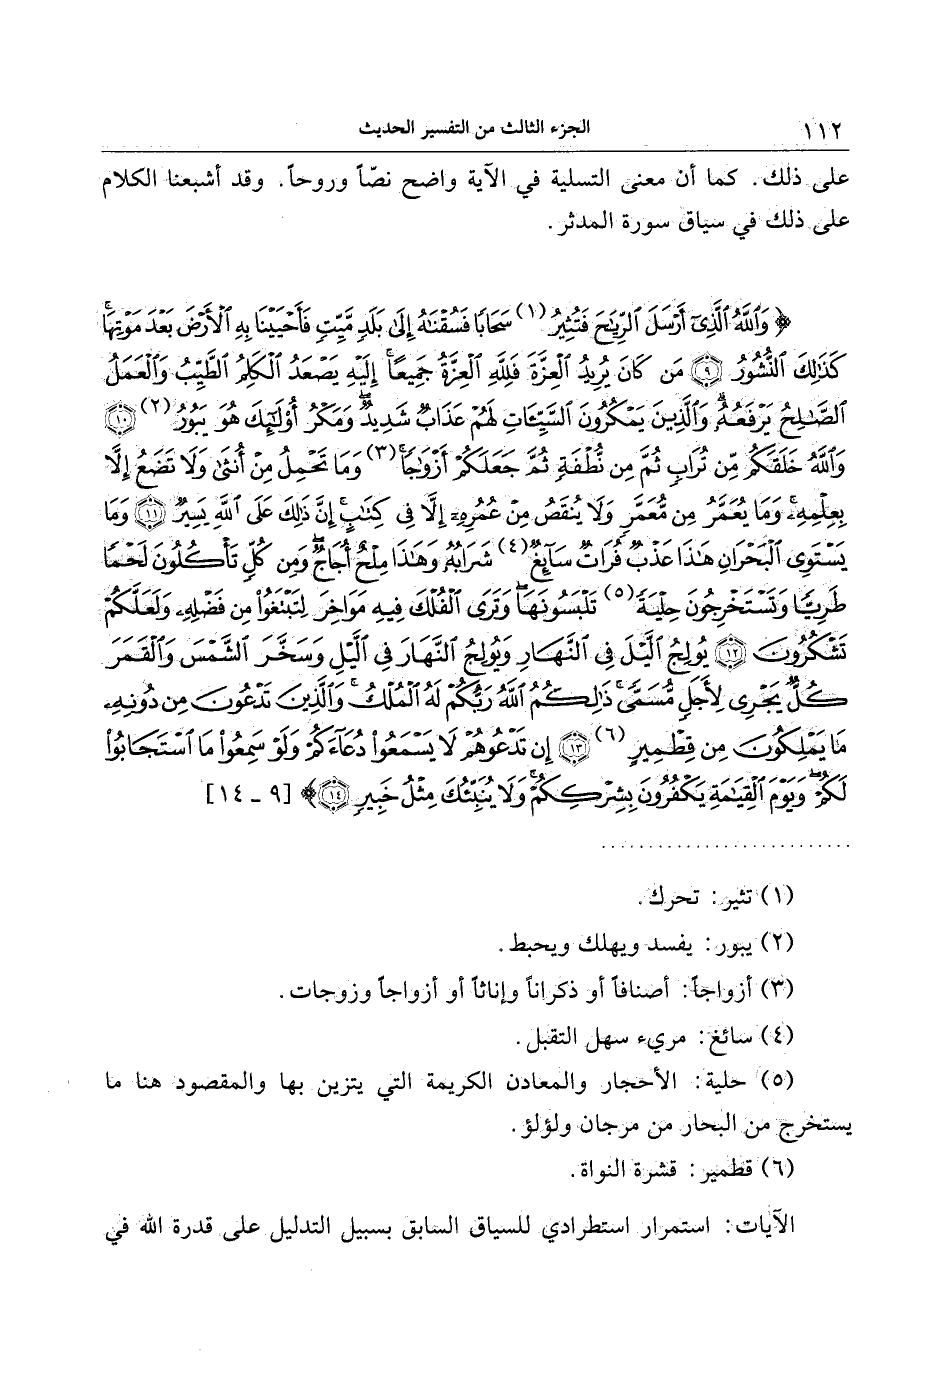 ١١٢ الجزء الثالث من التفسير الحديث
على ذلك. كما أن معنى التسلية في الآية واضح نصّاً وروحاً. وقد أشبعنا الكلام
على ذلك في سياق سورة المدثر.
﴿وَٱللَّهُ ٱلَّذِىٓ أَرْسَلَ ٱلرِّيَٰحَ فَتُثِيرُ (١) سَحَابًا فَسُقْنَٰهُ إِلَىٰ بَلَدٍ مَّيِّتٍ فَأَحْيَيْنَا بِهِ ٱلْأَرْضَ بَعْدَ مَوْتِهَا ۚ
كَذَٰلِكَ ٱلنُّشُورُ ٩ مَن كَانَ يُرِيدُ ٱلْعِزَّةَ فَلِلَّهِ ٱلْعِزَّةُ جَمِيعًا ۚ إِلَيْهِ يَصْعَدُ ٱلْكَلِمُ ٱلطَّيِّبُ وَٱلْعَمَلُ
ٱلصَّٰلِحُ يَرْفَعُهُۥ ۚ وَٱلَّذِينَ يَمْكُرُونَ ٱلسَّيِّـَٔاتِ لَهُمْ عَذَابٌ شَدِيدٌ ۖ وَمَكْرُ أُو۟لَٰٓئِكَ هُوَ يَبُورُ (٢) ١٠
وَٱللَّهُ خَلَقَكُم مِّن تُرَابٍ ثُمَّ مِن نُّطْفَةٍ ثُمَّ جَعَلَكُمْ أَزْوَٰجًا ۚ (٣) وَمَا تَحْمِلُ مِنْ أُنثَىٰ وَلَا تَضَعُ إِلَّا
بِعِلْمِهِۦ ۚ وَمَا يُعَمَّرُ مِن مُّعَمَّرٍ وَلَا يُنقَصُ مِنْ عُمُرِهِۦٓ إِلَّا فِى كِتَٰبٍ ۚ إِنَّ ذَٰلِكَ عَلَى ٱللَّهِ يَسِيرٌ ١١ وَمَا
يَسْتَوِى ٱلْبَحْرَانِ هَٰذَا عَذْبٌ فُرَاتٌ سَآئِغٌ (٤) شَرَابُهُۥ وَهَٰذَا مِلْحٌ أُجَاجٌ ۖ وَمِن كُلٍّ تَأْكُلُونَ لَحْمًا
طَرِيًّا وَتَسْتَخْرِجُونَ حِلْيَةً (٥) تَلْبَسُونَهَا ۖ وَتَرَى ٱلْفُلْكَ فِيهِ مَوَاخِرَ لِتَبْتَغُوا۟ مِن فَضْلِهِۦ وَلَعَلَّكُمْ
تَشْكُرُونَ ١٢ يُولِجُ ٱلَّيْلَ فِى ٱلنَّهَارِ وَيُولِجُ ٱلنَّهَارَ فِى ٱلَّيْلِ وَسَخَّرَ ٱلشَّمْسَ وَٱلْقَمَرَ
كُلٌّ يَجْرِى لِأَجَلٍ مُّسَمًّى ۚ ذَٰلِكُمُ ٱللَّهُ رَبُّكُمْ لَهُ ٱلْمُلْكُ ۚ وَٱلَّذِينَ تَدْعُونَ مِن دُونِهِۦ
مَا يَمْلِكُونَ مِن قِطْمِيرٍ (٦) ١٣ إِن تَدْعُوهُمْ لَا يَسْمَعُوا۟ دُعَآءَكُمْ وَلَوْ سَمِعُوا۟ مَا ٱسْتَجَابُوا۟
لَكُمْ ۖ وَيَوْمَ ٱلْقِيَٰمَةِ يَكْفُرُونَ بِشِرْكِكُمْ ۚ وَلَا يُنَبِّئُكَ مِثْلُ خَبِيرٍ ١٤﴾ [٩ ـ ١٤]
..........................
(١) تثير: تحرك.
(٢) يبور: يفسد ويهلك ويحبط.
(٣) أزواجاً: أصنافاً أو ذكراناً وإناثاً أو أزواجاً وزوجات.
(٤) سائغ: مريء سهل التقبل.
(٥) حلية: الأحجار والمعادن الكريمة التي يتزين بها والمقصود هنا ما
يستخرج من البحار من مرجان ولؤلؤ.
(٦) قطمير: قشرة النواة.
الآيات: استمرار استطرادي للسياق السابق بسبيل التدليل على قدرة الله في